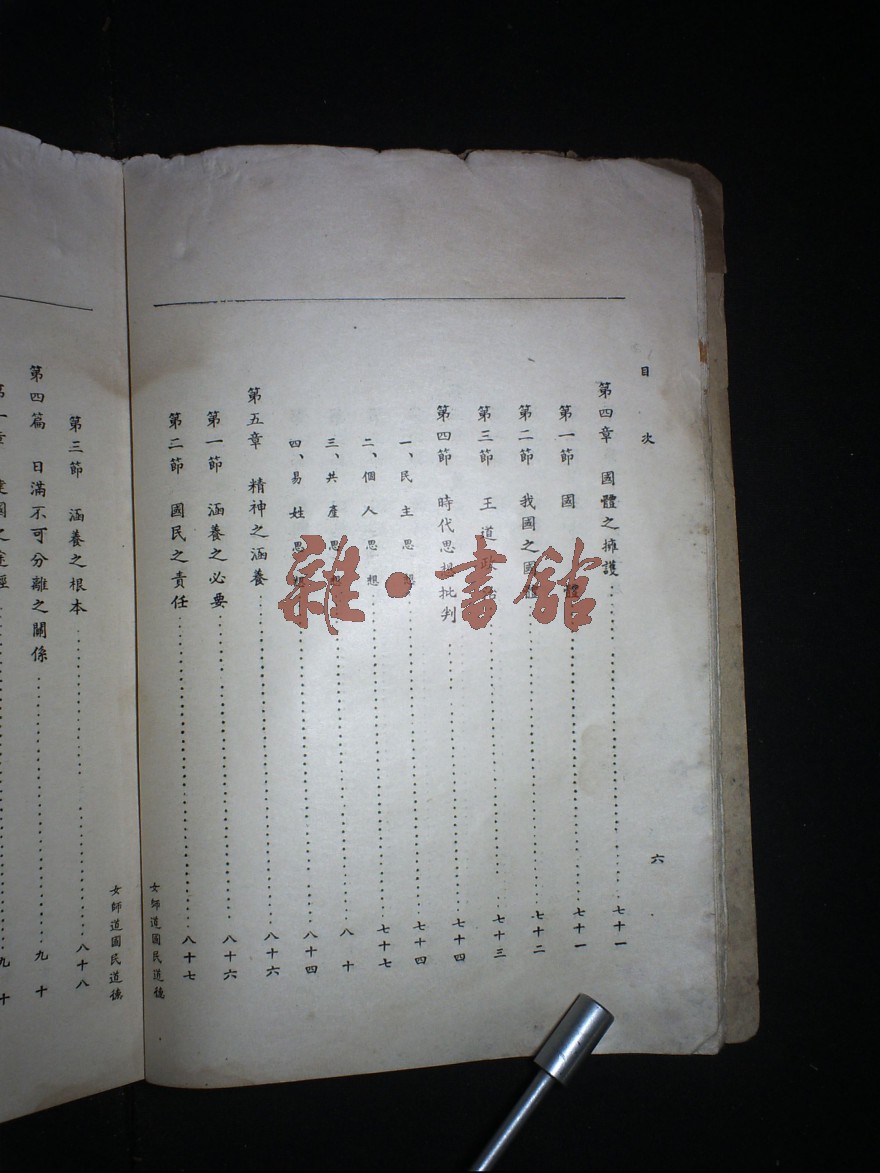 目次
六
第四章 國體之擁護 七十一
第一節 國體 七十一
第二節 我國之國體 七十二
第三節 王道 七十三
第四節 時代思想批判 七十四
一、民主思想 七十四
二、個人思想 七十七
三、共產思想 八十
四、易姓思想 八十四
第五章 精神之涵養 八十六
第一節 涵養之必要 八十六
第二節 國民之責任 八十七
女師道國民道德
女師道國民道德
第三節 涵養之根本 八十八
第四篇 日滿不可分離之關係 九十
第一章 建國之途經 九十
雜·書館